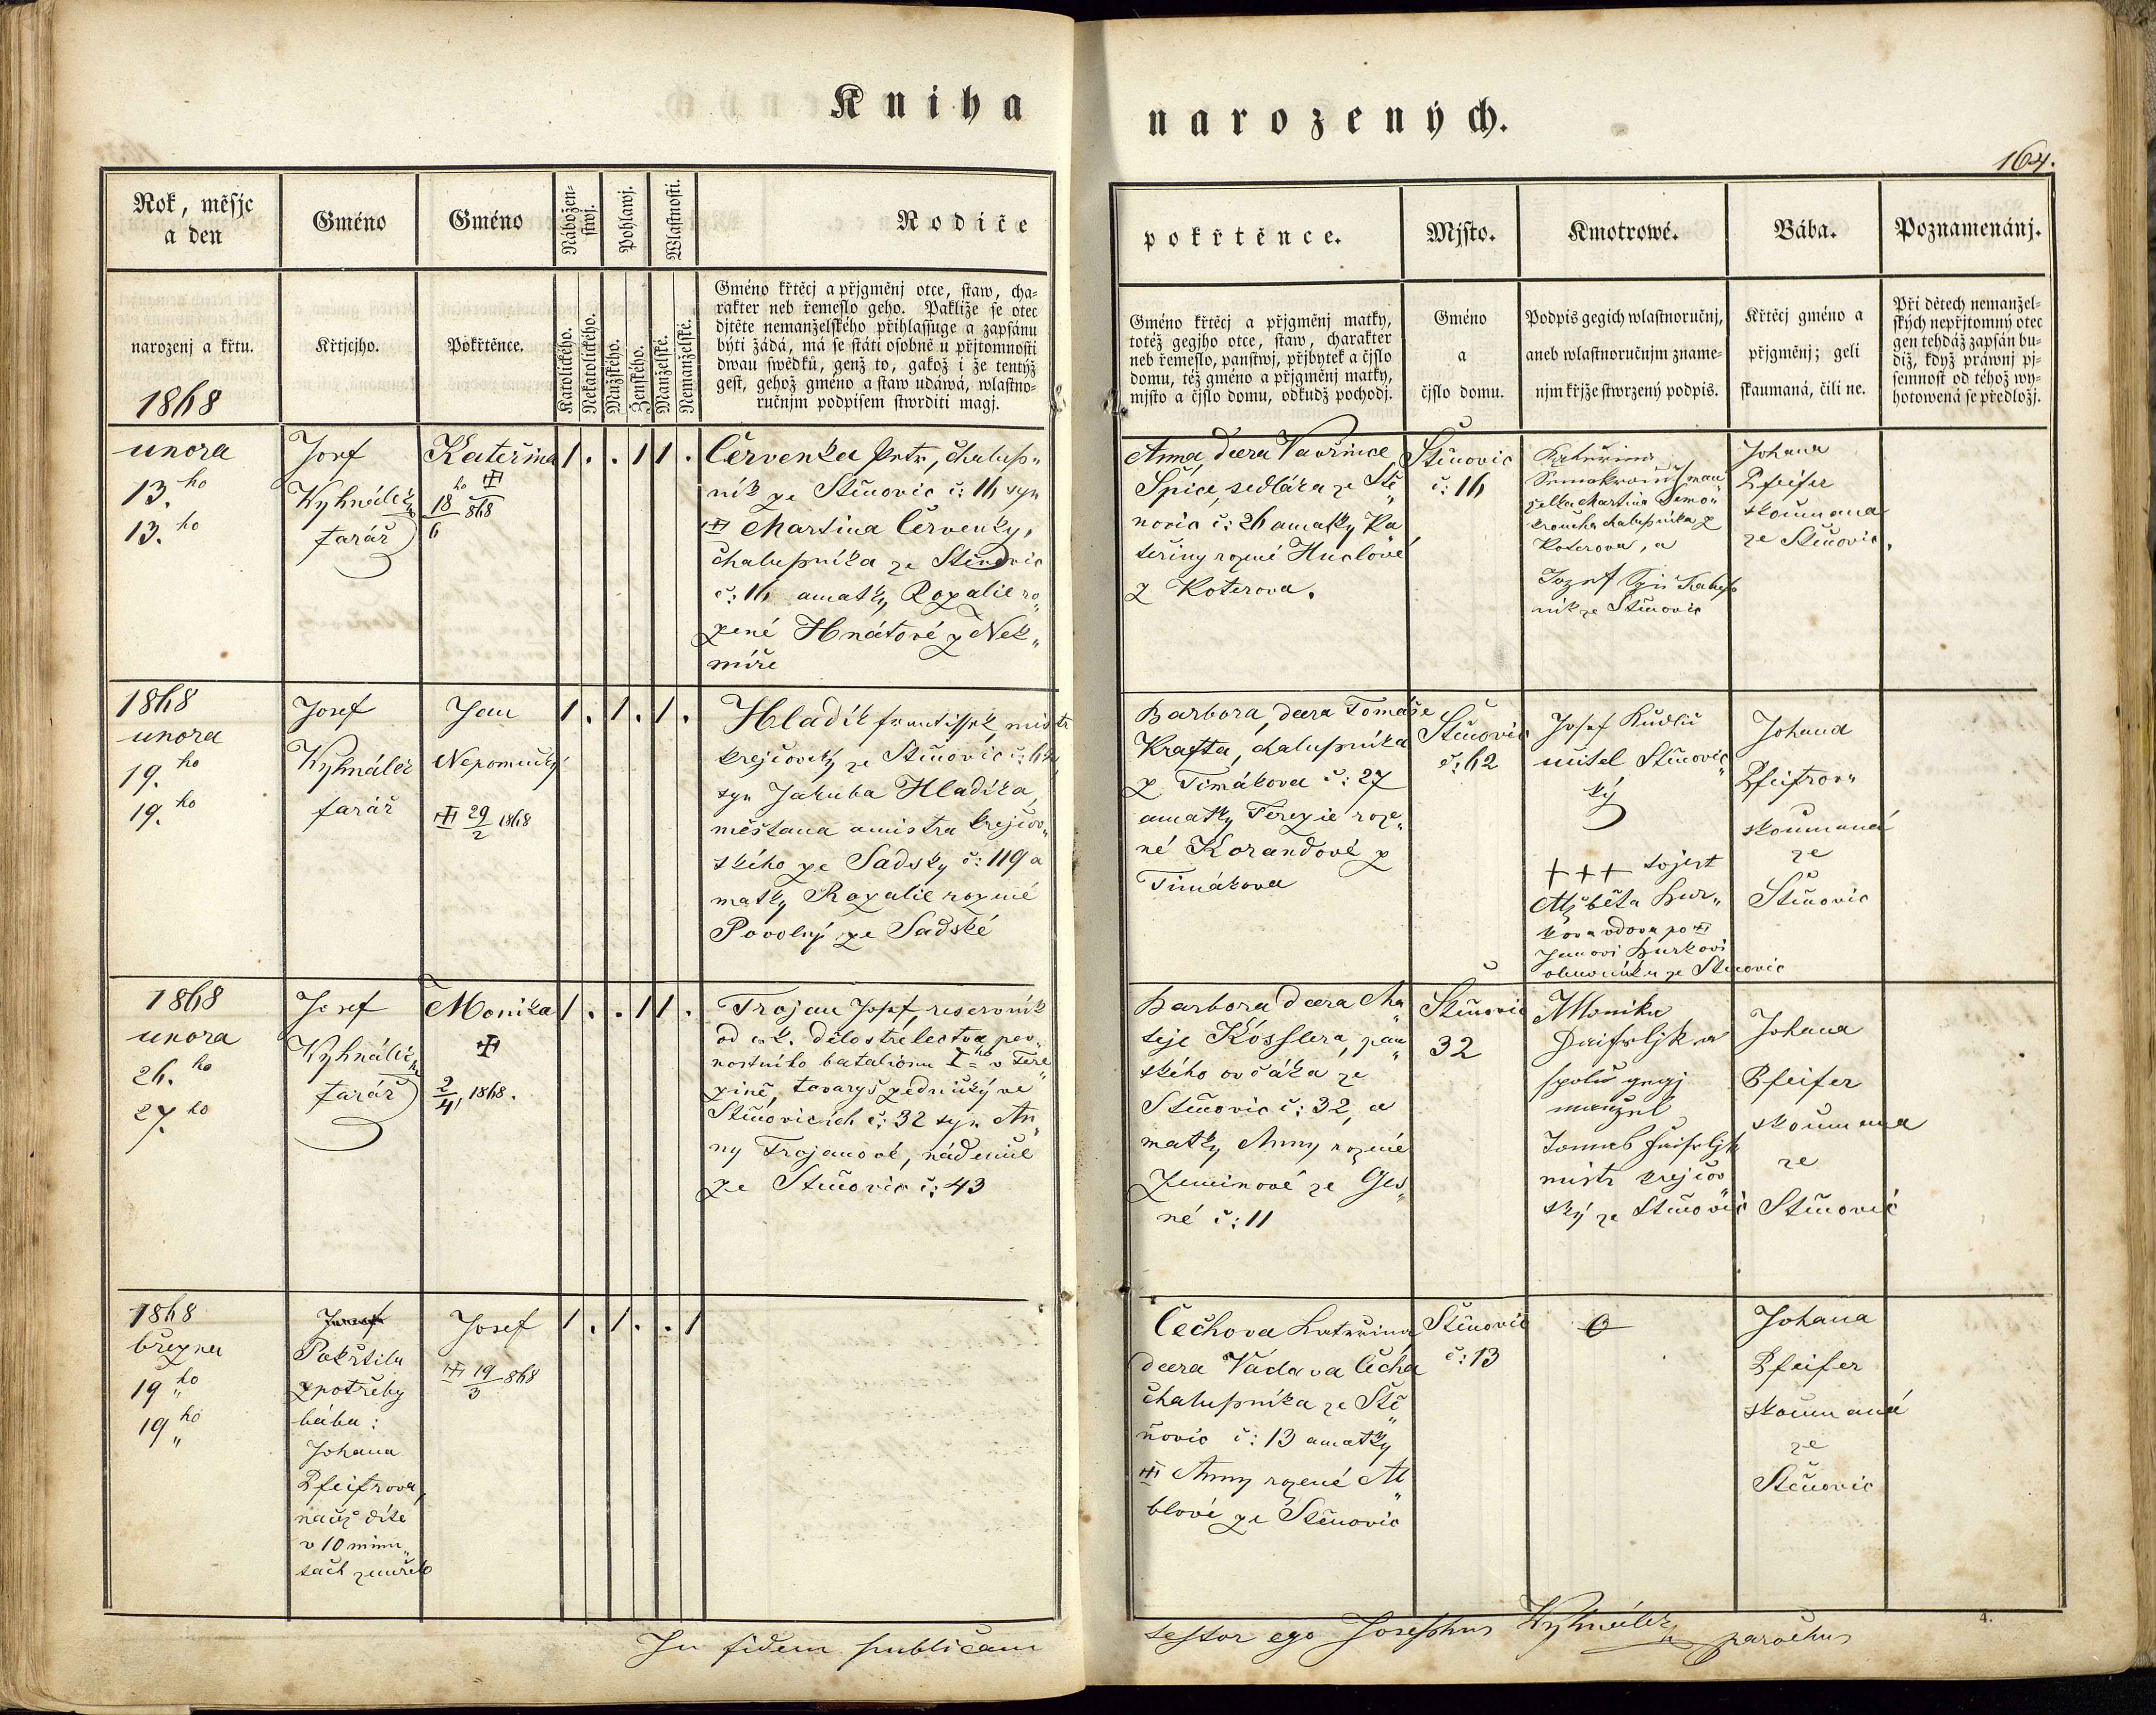 Kniha
narozených.
164.
Rok, měsjc
a den
Gméno
Gméno
Nábožen-
stwj.
Pohlawj.
Wlastnosti.
Rodiče
pokřtěnce.
Mjsto.
Kmotrowé.
Bába.
Poznamenánj.
narozenj a křtu.
1868
Křtjcjho.
Pokřtěnce.
Katolického.
Nekatolického.
Mužského.
Ženského.
Manželské.
Nemanželské.
Gméno křtěcj a přjgměnj otce, staw, cha-
rakter neb řemeslo geho. Pakliže se otec
djtěte nemanželského přihlassuge a zapsánu
býti žádá, má se státi osobně u přjtomnosti
dwau swědků, genž to, gakož i že tentýž
gest, gehož gméno a staw udáwá, wlastno-
ručnjm podpisem stwrditi magj.
Gméno křtěcj a přjgměnj matky,
totéž gegjho otce, staw, charakter
neb řemeslo, panstwj, přjbytek a čjslo
domu, též gméno a přjgměnj matky,
mjsto a čjslo domu, odkudž pocházj.
Gméno
a
čjslo domu.
Podpis gegich wlastnoručnj,
aneb wlastnoručnjm zname-
njm křjže stwrzený podpis.
Křtěcj gméno a
přjgměnj; geli
skaumaná, čili ne.
Při dětech nemanžel-
ských nepřjtomný otec
gen tehdáž zapsán bu-
diž, když práwnj pj-
semnost od téhož wy-
hotowená se předložj.
unora
13.ho
13.ho
Josef
Vyhnálek
farář
Kateřina
18/6 868
1 . . 1 1 .
Červenka Petr, chalup„
ník ze Štěnovic č: 16 syn
Martina Červenky,
chalupníka ze Štěnovic
č: 16 a matky Rozalie ro„
zené Hnátové z Nek„
míře
Anna, dcera Vavřince
Špice, sedláka ze Ště„
novic č: 26 a matky Ka
teřiny rozené Huclové
z Koterova.
Štěnovic
č: 16
Kateřina
chalupníka z
Koterova, a
Jozef
ník ze Štěnovic
Johana
Pfeifer
skoumana
ze Štěnovic
1868
unora
19.ho
19.ho
Josef
Vyhnálek
farář
Jan
Nepomucký
29/2 1868
1 . 1 . 1 .
Hladík Frantissek, mistr
krejčovský ze Štěnovic č: 62,
syn Jakuba Hladíka,
měštana a mistra krejčov„
ského ze Sadsky č: 119 a
matky Rozalie rozené
Povolný ze Sadské
Barbora, dcera Tomáše
Krafta, chalupníka
z Timákova č: 27
a matky Terezie roze„
né Korandové z
Timákova
Štěnovic
č: 62
Josef Kudlič
učitel Štěnovic„
ký
+++ tojest
Alžběta Hur„
kova vdova po
Janovi Hurkovi
ze Štěnovic
Johana
Pfeifrov„
skoumaná
ze
Štěnovic
1868
unora
26.ho
27.ho
Josef
Vyhnálek
farář
Monika
2/4, 1868.
1 . . 1 1 .
Trojan Josef, reservník
od c. k. dělostřelectva pev„
nostního batalionu I.ho v Tere„
zíně, tovaryš zednický ve
Štěnovicích č: 32 syn An„
ny Trojanové, nádenice
ze Štěnovic č: 43
Barbora dcera Ma„
těje Kösslera, pan„
ského ovčáka ze
Štěnovic č: 32, a
matky Anny rozené
Zeminové ze Ges„
né č: 11
Štěnovic
32
Monika
a
spolu gegj
manžel
Tomas
mistr krejčov
ský ze Štěnovic
Johana
Pfeifer
skoumana
ze
Štěnovic
1868
března
19ho„
19ho„
Josef
Pokřtila
z potřeby
bába:
Johana
Pfeifrova,
načež díte
v 10 minu„
tach zemřelo
Josef
19/3 868
1 . 1 . . 1
Čechova Kateřina
dcera Václava Čecha
chalupníka ze Ště„
novic č: 13 a matky
Anny rozené Al„
blové ze Štěnovic
Štěnovic
č: 13
0
Johana
Pfeifer
skoumaná
ze
Štěnovic
In fidem publicam
testor ego Josephus Vyhnálek parochus
4.